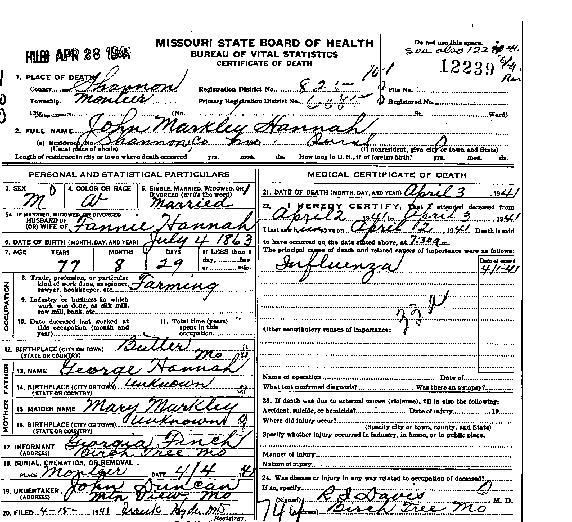 FILED APR 28 1941
MISSOURI STATE BOARD OF HEALTH
BUREAU OF VITAL STATISTICS
CERTIFICATE OF DEATH
Do not use this space.
see also 122
12239
1. PLACE OF DEATH
County Shannon
Registration District No.
File No.
Township Montier
Primary Registration District No.
Registered No.
City (No. St. Ward)
2. FULL NAME John Markley Hannah
(a) Residence, No. Shannon Co Mo. Rural
(Usual place of abode) (If nonresident, give city or town and State)
Length of residence in city or town where death occurred yrs. mos. ds. How long in U.S., if of foreign birth? yrs. mos. ds.
PERSONAL AND STATISTICAL PARTICULARS
3. SEX M
4. COLOR OR RACE W
5. SINGLE, MARRIED, WIDOWED, OR DIVORCED (write the word) Married
5A. IF MARRIED, WIDOWED, OR DIVORCED
HUSBAND OF (OR) WIFE OF Fannie Hannah
6. DATE OF BIRTH (MONTH, DAY, AND YEAR) July 4 1863
7. AGE YEARS 77 MONTHS 8 DAYS 29 If LESS than 1 day, hrs. or min.
OCCUPATION
8. Trade, profession, or particular kind of work done, as spinner, sawyer, bookkeeper, etc. Farming
9. Industry or business in which work was done, as silk mill, saw mill, bank, etc.
10. Date deceased last worked at this occupation (month and year)
11. Total time (years) spent in this occupation
12. BIRTHPLACE (CITY OR TOWN) Butler
(STATE OR COUNTRY) Mo
FATHER
13. NAME George Hannah
14. BIRTHPLACE (CITY OR TOWN) unknown
(STATE OR COUNTRY)
MOTHER
15. MAIDEN NAME Mary Markley
16. BIRTHPLACE (CITY OR TOWN) unknown
(STATE OR COUNTRY)
17. INFORMANT Georgia Finch
(ADDRESS) Birch Tree Mo
18. BURIAL, CREMATION, OR REMOVAL
PLACE Montier DATE 4/4 41
19. UNDERTAKER John Duncan
(ADDRESS) Mtn View, Mo
20. FILED 4-15- 1941 Frank Hyde MD
Registrar
MEDICAL CERTIFICATE OF DEATH
21. DATE OF DEATH (MONTH, DAY, AND YEAR) April 3 1941
22. I HEREBY CERTIFY, That I attended deceased from
April 2 1941 to April 3, 1941
I last saw him alive on April 2, 1941 Death is said
to have occurred on the date stated above, at
The principal cause of death and related causes of importance were as follows:
Date of onset
Influenza 4/1-41
33
Other contributory causes of importance:
Name of operation Date of
What test confirmed diagnosis? Was there an autopsy?
23. If death was due to external causes (violence), fill in also the following:
Accident, suicide, or homicide? Date of injury 19
Where did injury occur?
(Specify city or town, county, and State)
Specify whether injury occurred in industry, in home, or in public place.
Manner of injury
Nature of injury
24. Was disease or injury in any way related to occupation of deceased?
If so, specify
(Signed) R I Davis M. D.
(Address) Birch Tree Mo